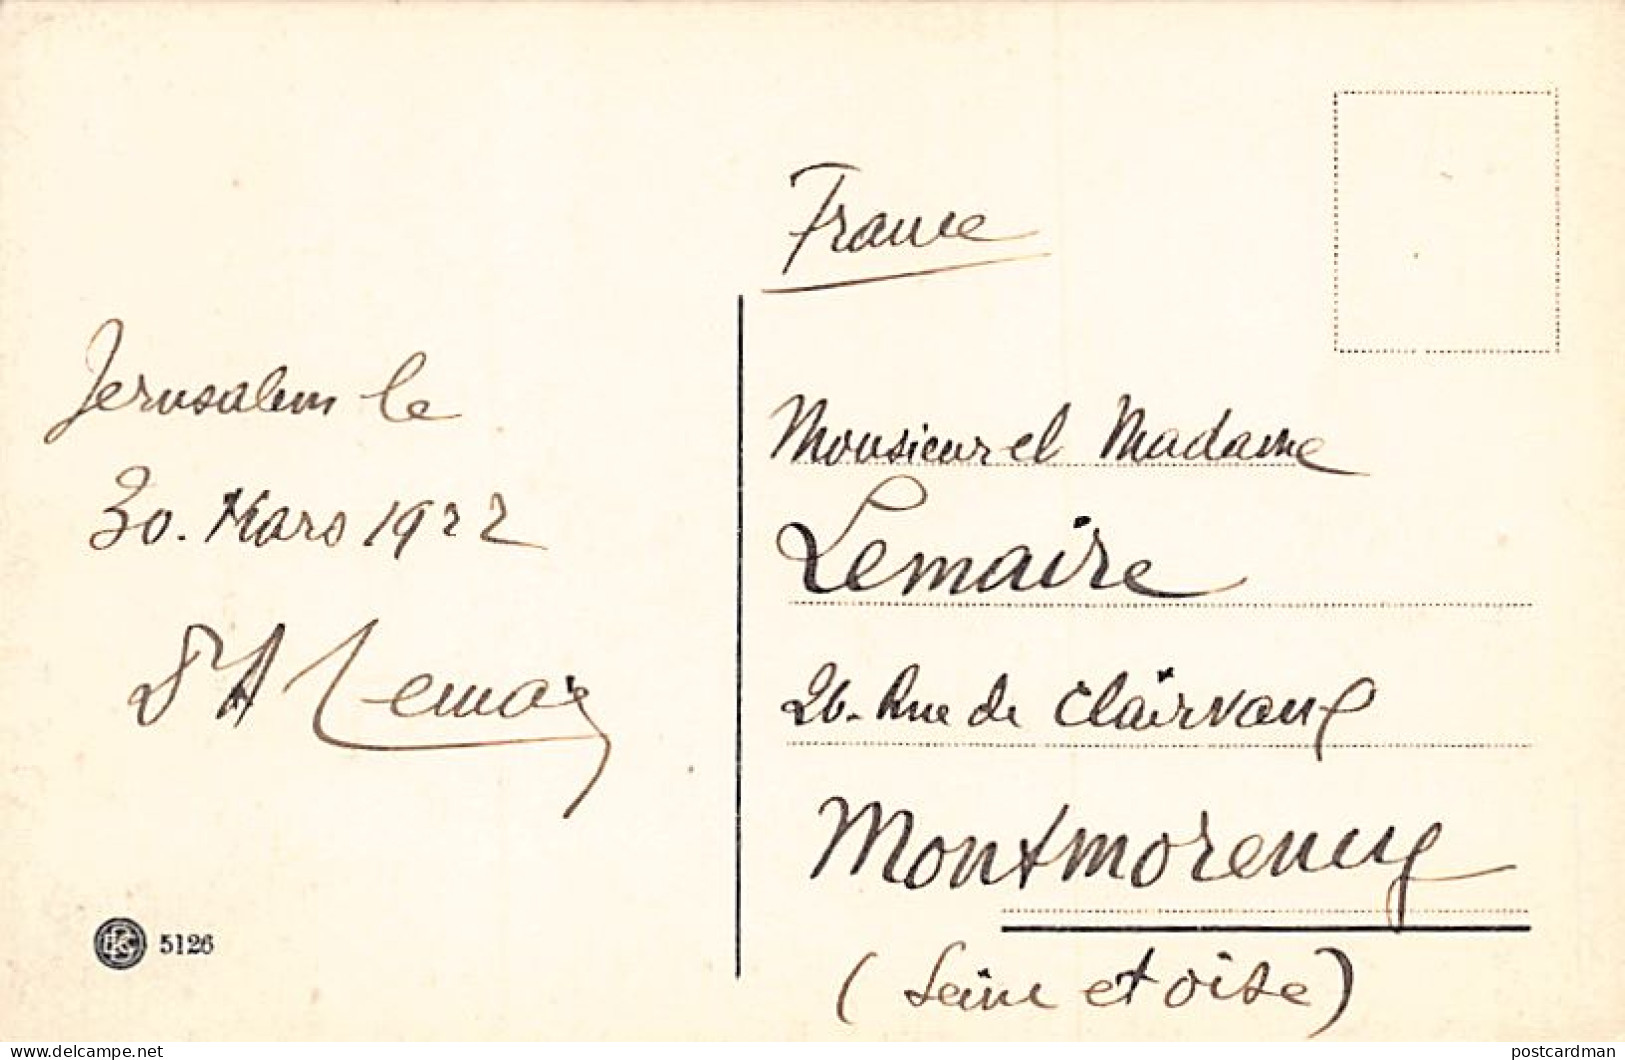 Jerusalem le
30. Mars 1922
Lemaire
5126
France
Monsieur et Madame
Lemaire
26. Rue de Clairvaux
Montmorency
(Seine et oise)
postcardman